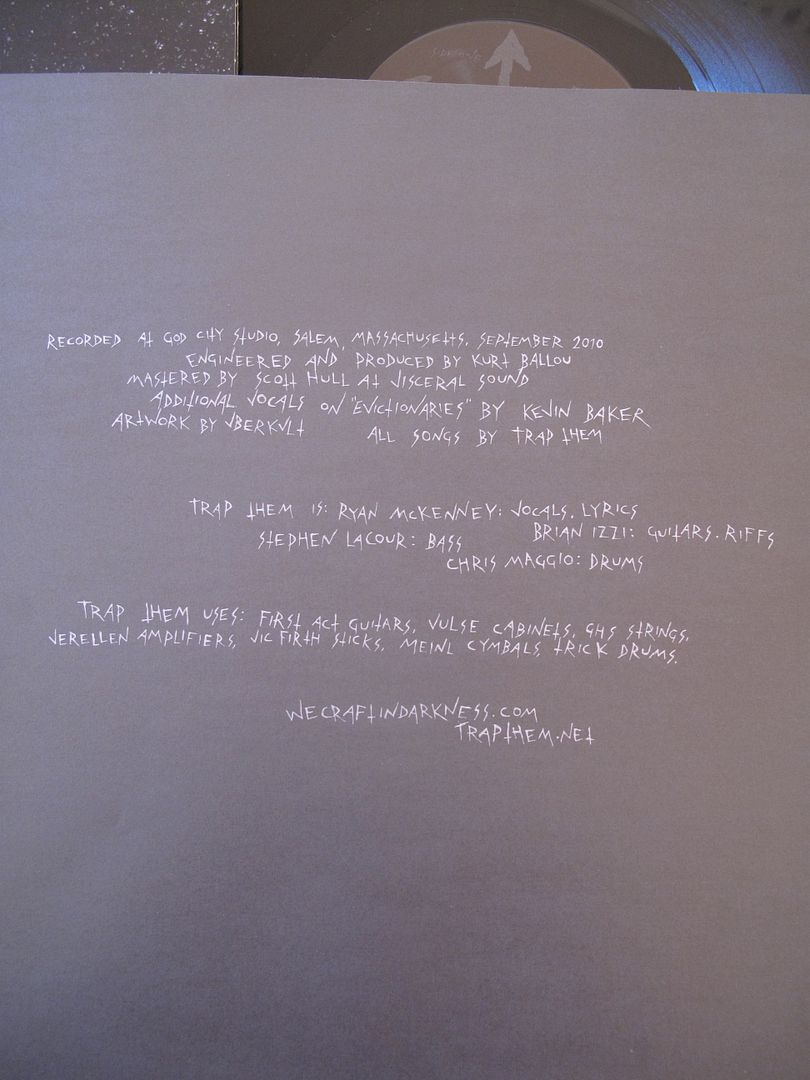 RECORDED AT GOD CITY STUDIO, SALEM, MASSACHUSETTS, SEPTEMBER 2010
ENGINEERED AND PRODUCED BY KURT BALLOU
MASTERED BY SCOTT HULL AT VISCERAL SOUND
ADDITIONAL VOCALS ON "EVICTIONARIES" BY KEVIN BAKER
ARTWORK BY VBERKVLT ALL SONGS BY TRAP THEM
TRAP THEM IS: RYAN MCKENNEY: VOCALS. LYRICS
BRIAN IZZI: GUITARS. RIFFS
STEPHEN LACOUR: BASS
CHRIS MAGGIO: DRUMS
TRAP THEM USES: FIRST ACT GUITARS, VULSE CABINETS, GHS STRINGS,
VERELLEN AMPLIFIERS, VIC FIRTH STICKS, MEINL CYMBALS, TRICK DRUMS.
WECRAFTINDARKNESS.COM
TRAPTHEM.NET